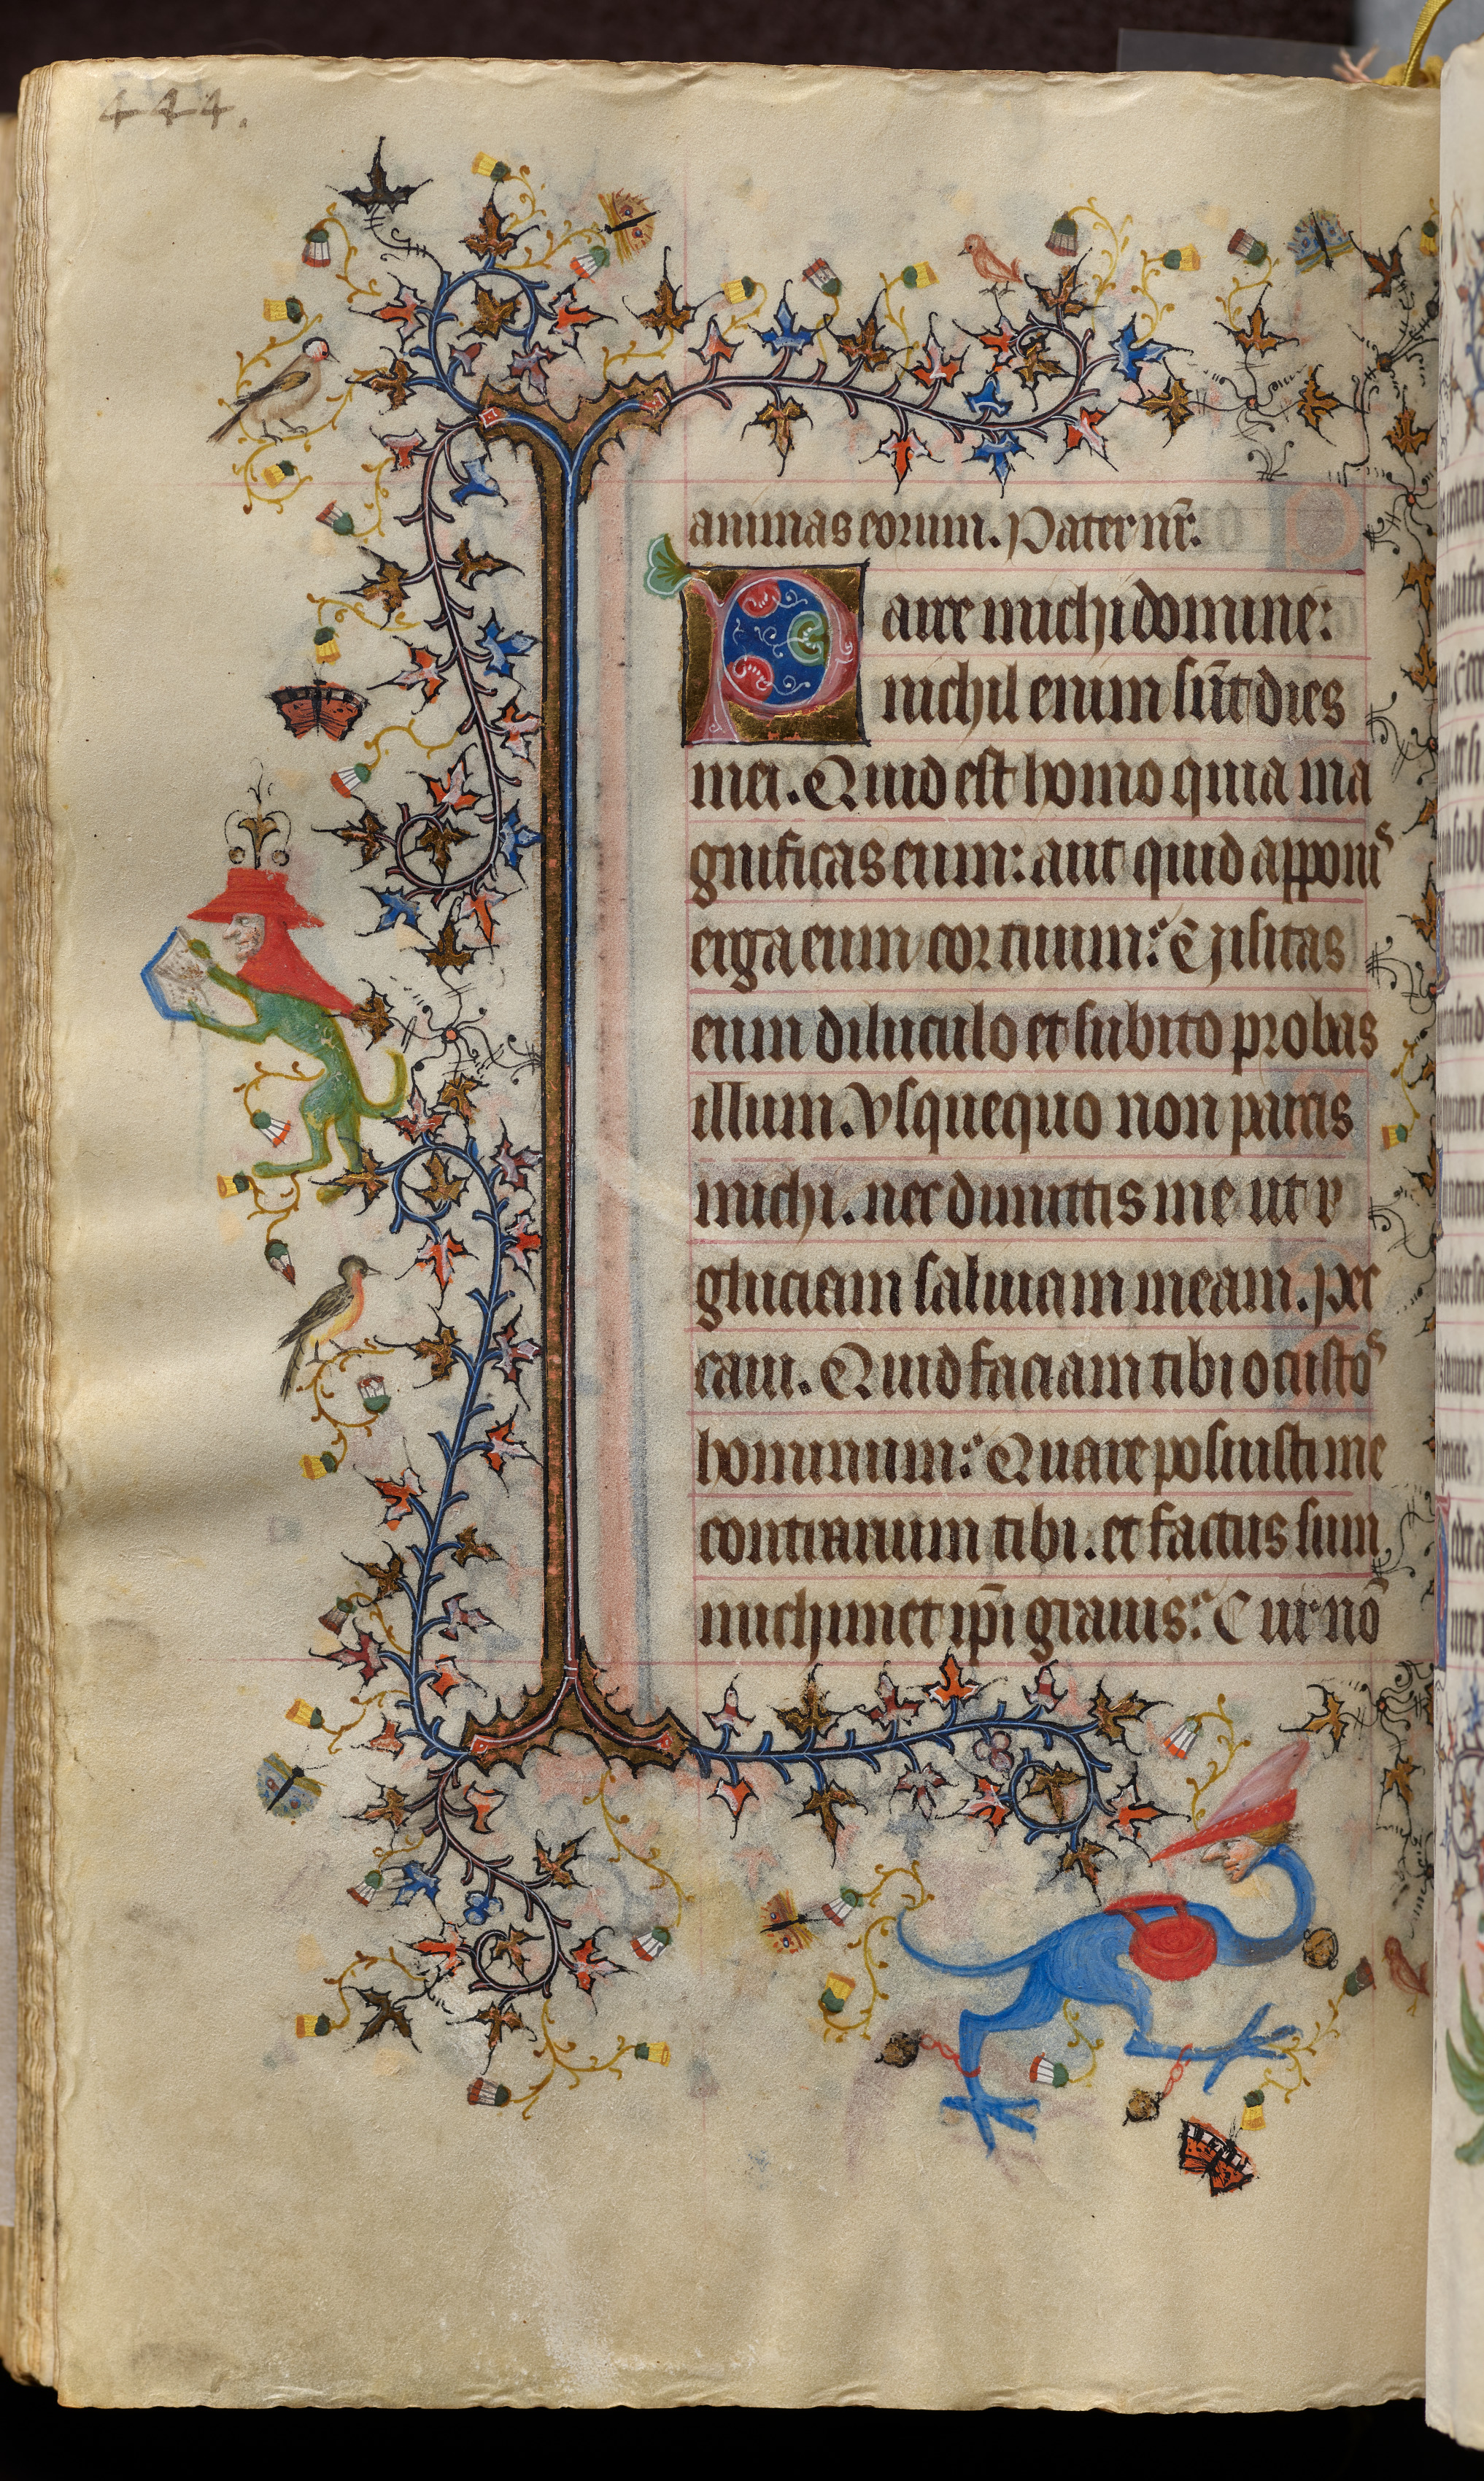 444.
animas eorum. Pater nr̄.
Parce michi domine:
nichil enim sūt dies
mei. Quid est homo quia ma
gnificas eum: aut quid apponis
erga eum cor tuum: Visitas
eum diluculo et subito probas
illum. Vsquequo non parcis
michi. nec dimittis me ut
gluciam saliuam meam. pec
caui. Quid faciam tibi o custos
hominum: Quare posuisti me
contrarium tibi. et factus sum
michimet ip̄i grauis: Cur nō